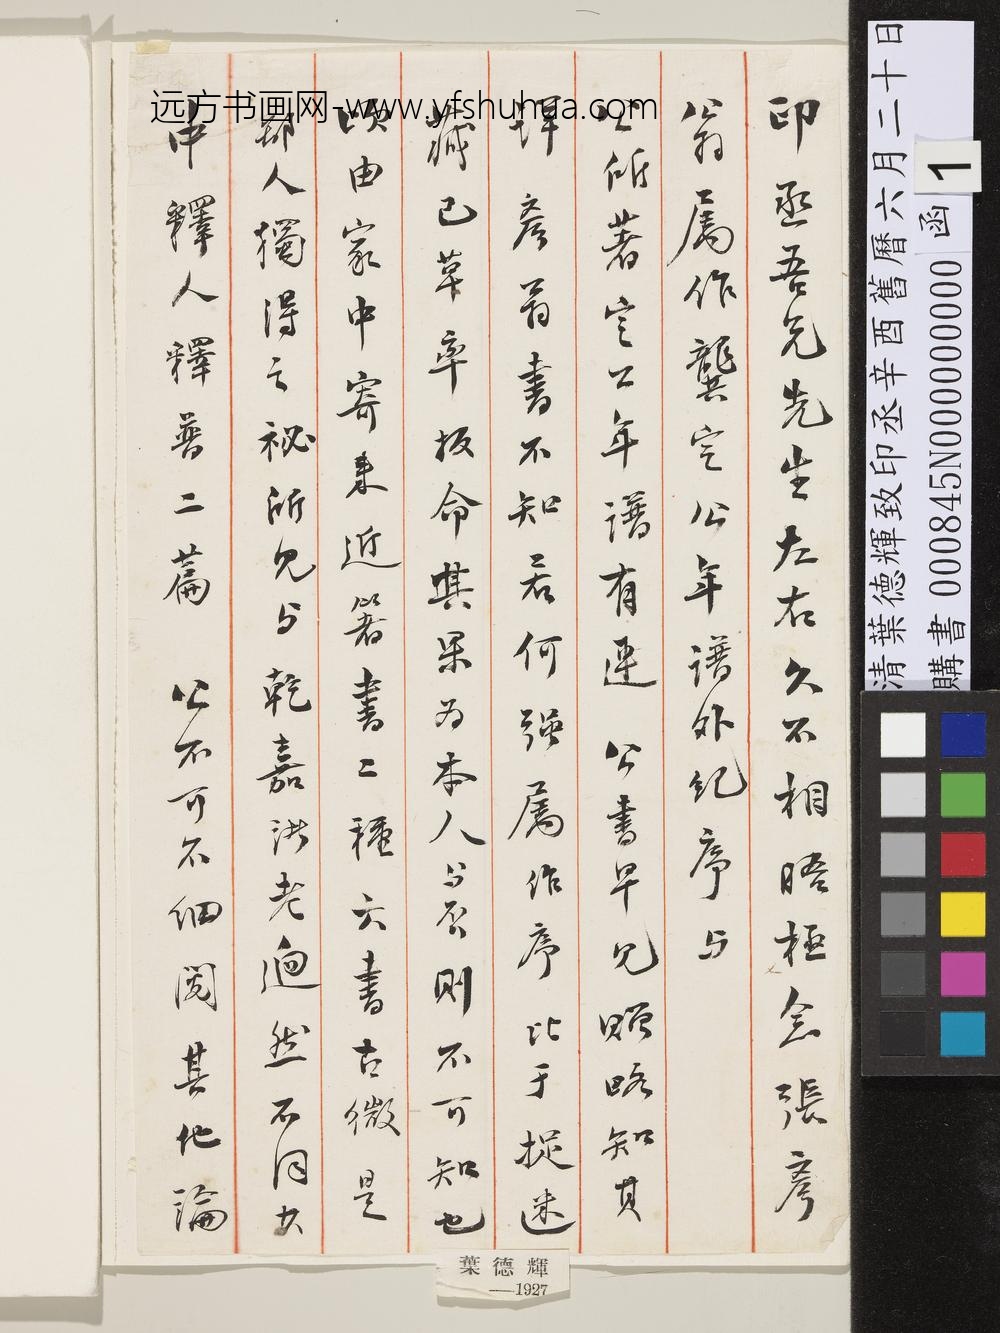 远方书画网-www.yfshuhua.com
印丞吾兄先生左右久不相晤極念張彥
翁属作龔定公年譜外紀序与
公所著定公年譜有連 公書早見贈略知其
詳 彥翁書不知若何強属作序 比于捉迷
藏已草率报命其果为本人与否則不可知也
頃由家中寄来近著書二種六書古微是
鄙人獨得之祕所見与乾嘉諸老迥然不同其
中釋人釋普二篇 公不可不细閱其他論
葉德輝
—1927
清葉德輝致印丞辛酉舊曆六月二十日
購書 000845N000000000 函 1